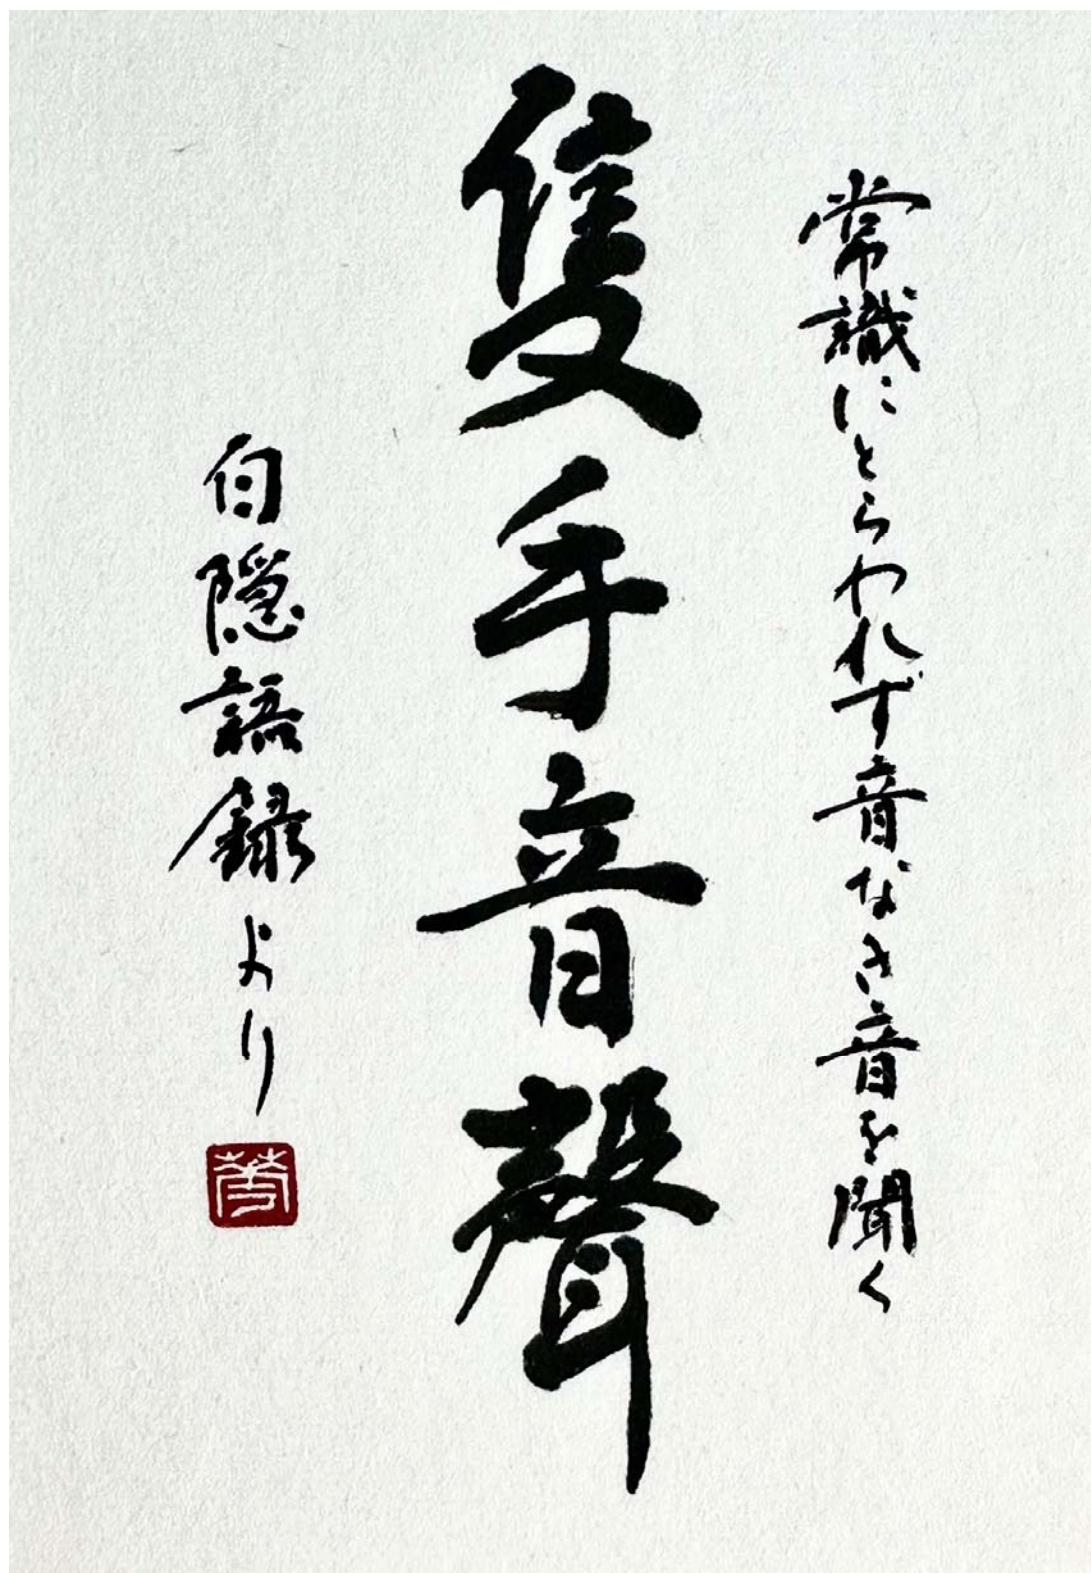 常識にとらわれず音なき音を聞く
隻手音聲
白隠語録より